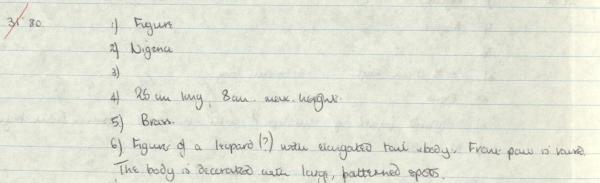 31 80 1) Figure
2) Nigeria
3)
4) 26 cm long, 8cm. max. height.
5) Brass.
6) Figure of a leopard (?) with elongated tail & body. Front paw is raised.
The body is decorated with large, patterned spots.